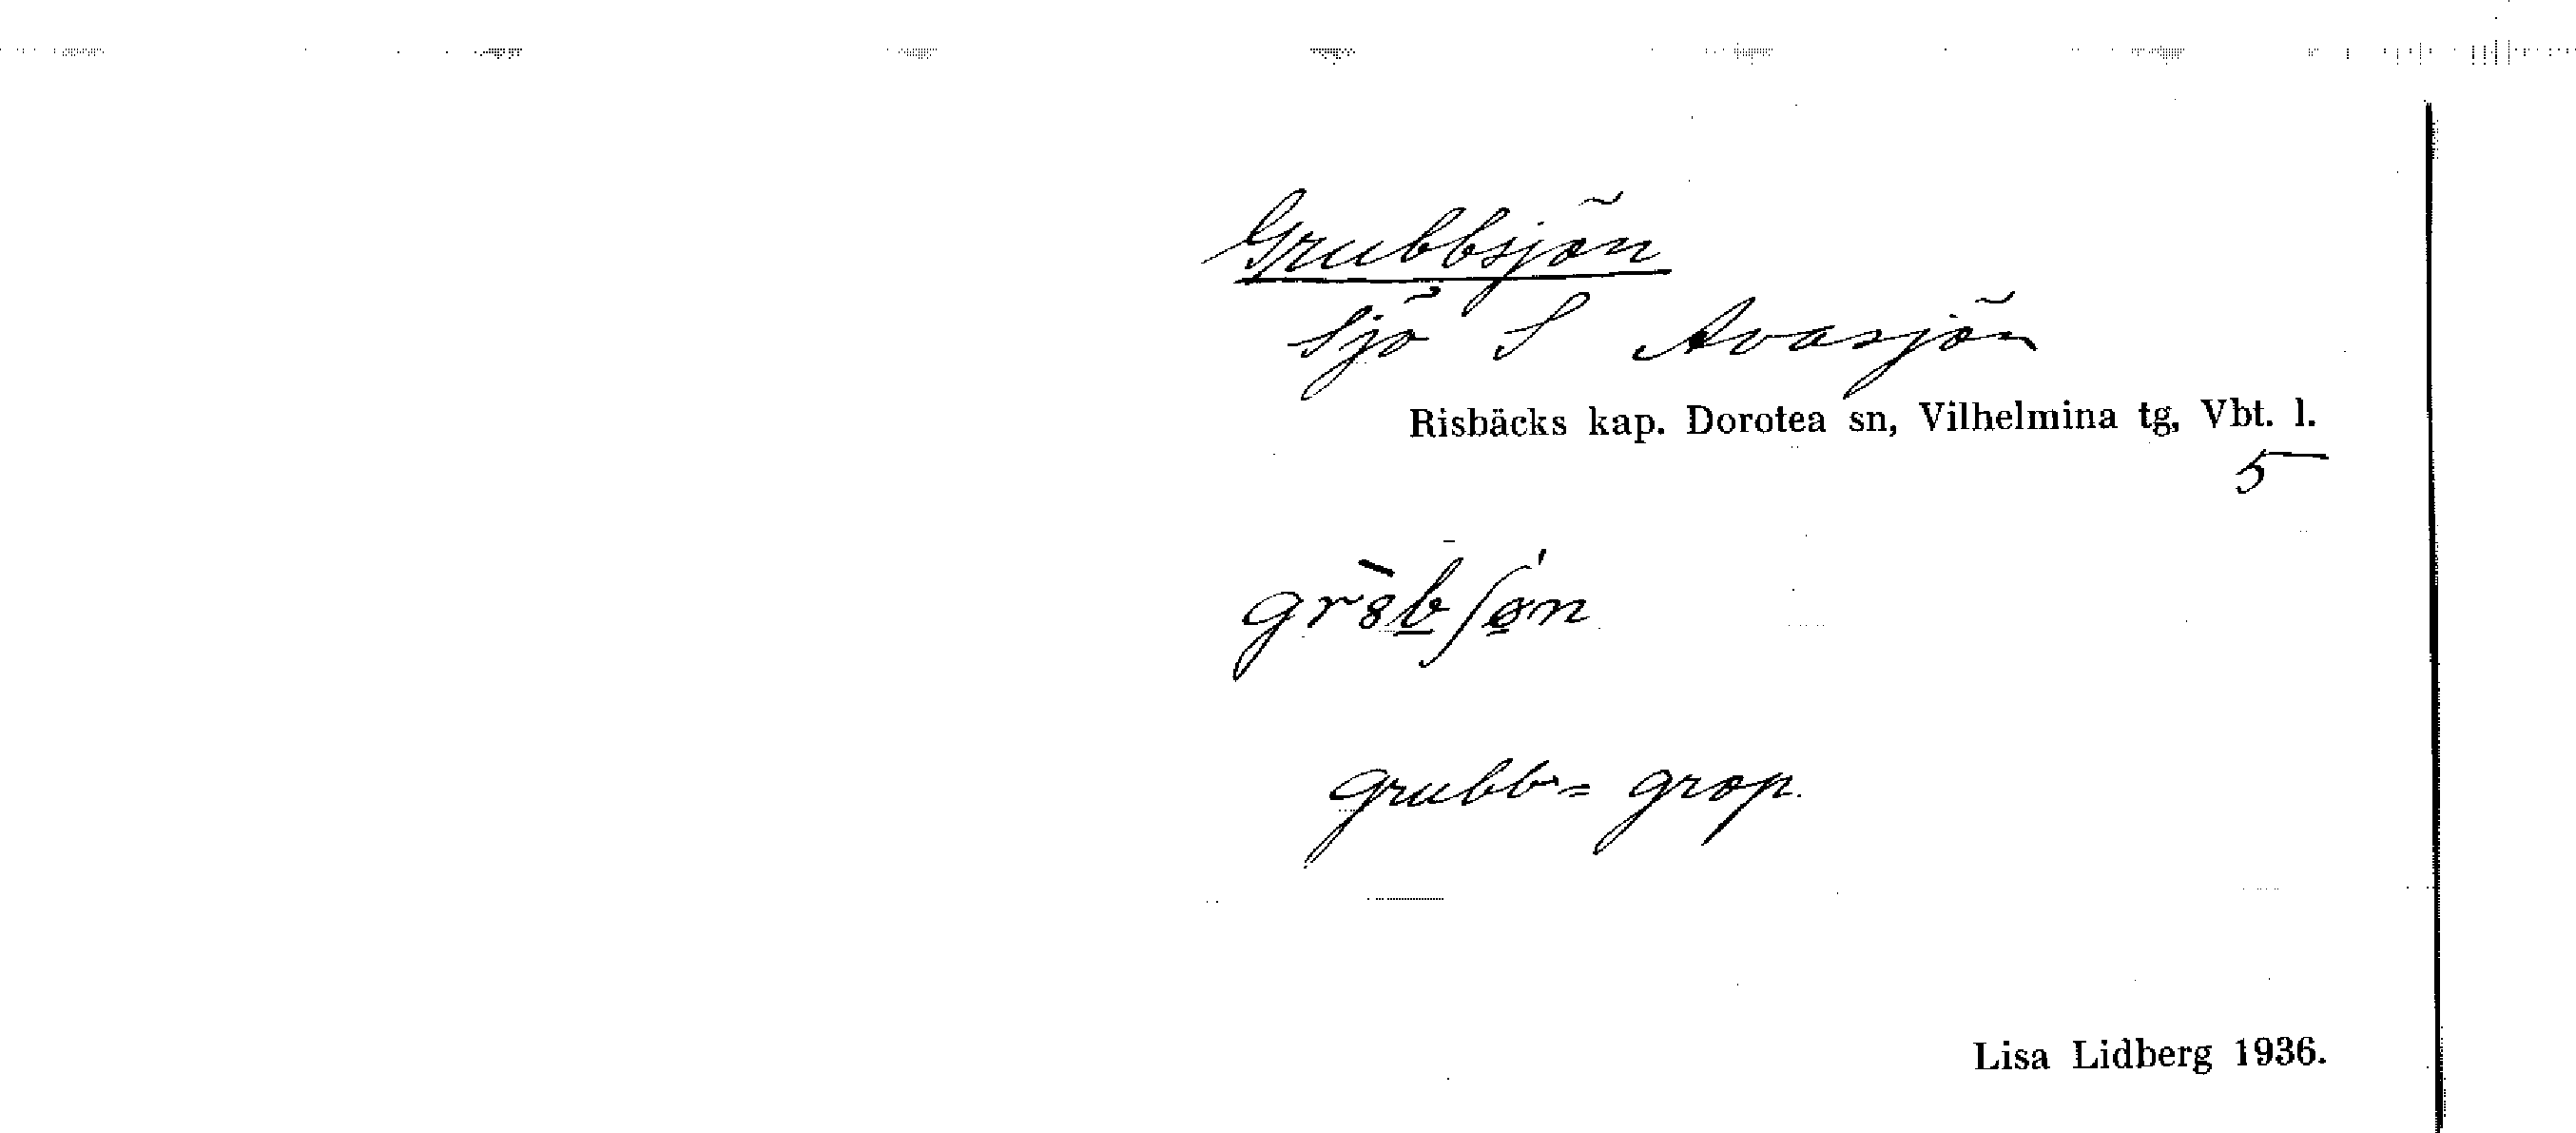 Grubbsjön
Sjö S Avasjön
Risbäcks kap. Dorotea sn, Vilhelmina tg, Vbt. l.
5
grubb = grop.
Lisa Lidberg 1936.